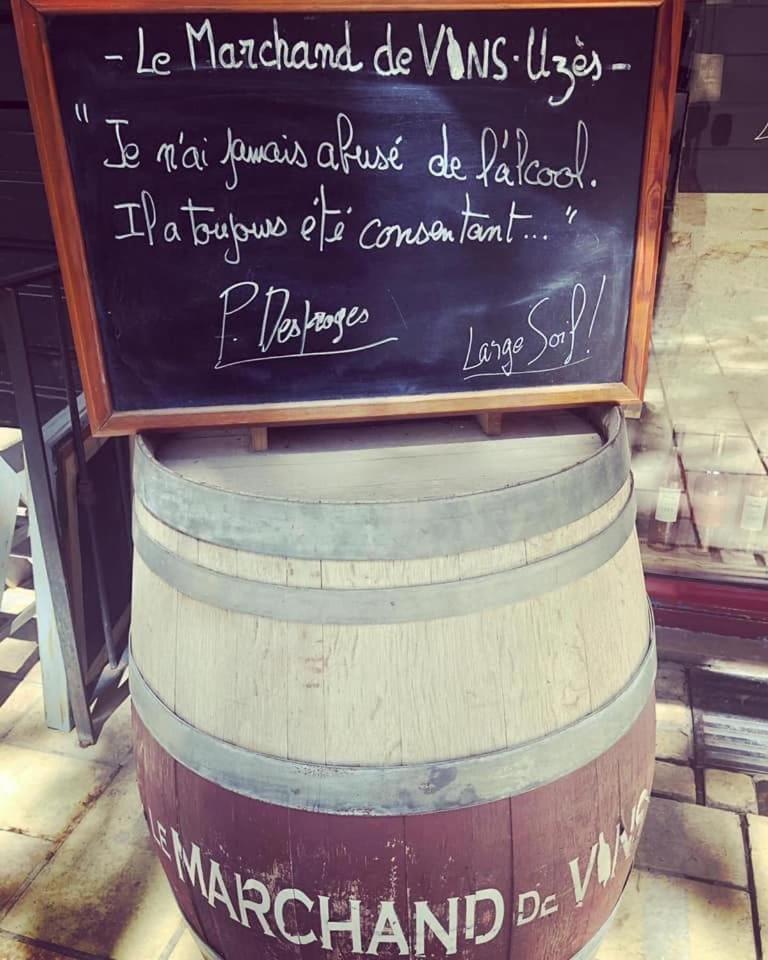 - Le Marchand de VINS · Uzès -
" Je n'ai jamais abusé de l'alcool.
Il a toujours été consentant... "
P. Desproges
Large Soif!
LE MARCHAND DE VINS